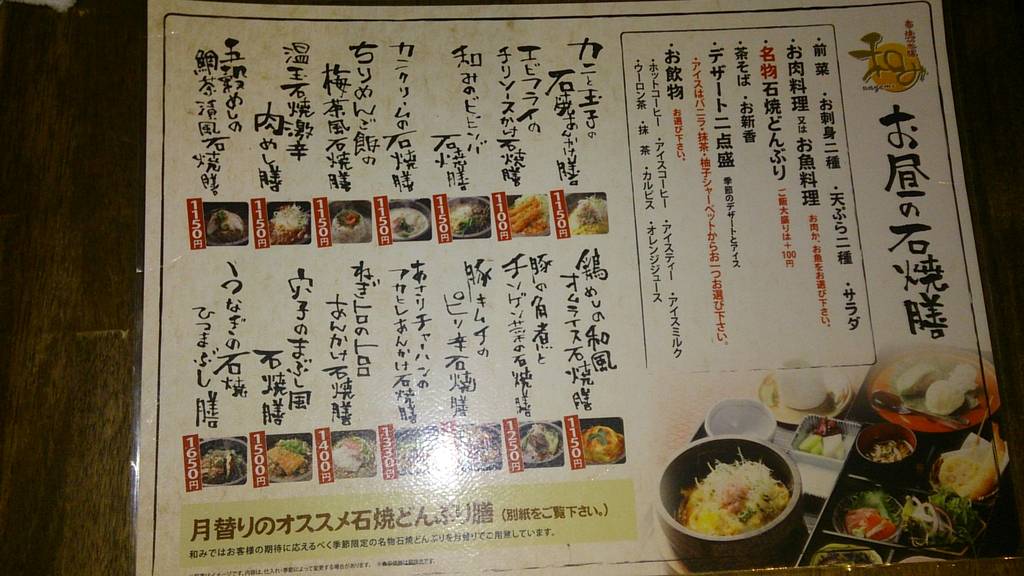 和み
nagomi
お昼の石焼膳
・前菜 ・お刺身二種 ・天ぷら二種 ・サラダ
・お肉料理 又は お魚料理 お肉か、お魚をお選び下さい。
・名物石焼どんぶり ご飯大盛りは+100円
・茶そば ・お新香
・デザート二点盛 季節のデザートとアイス
・アイスはバニラ・抹茶・柚子シャーベットからお一つお選び下さい。
・お飲物 お選び下さい。
・ホットコーヒー ・アイスコーヒー ・アイスティー ・アイスミルク
・ウーロン茶 ・抹茶 ・カルピス ・オレンジジュース
カニと玉子の
石焼あんかけ膳
1150円
エビフライの
チリソースかけ石焼膳
1100円
和みのビビンバ
石焼膳
1150円
カニクリームの石焼膳
1150円
ちりめんご飯の
梅茶風石焼膳
1150円
温玉石焼激辛
肉めし膳
1150円
五穀めしの
鯛茶漬風石焼膳
1150円
鶏めしの和風
オムライス石焼膳
1150円
豚の角煮と
チンゲン菜の石焼膳
1250円
豚キムチの
ピリ辛石焼膳
あさりチャーハンの
アオヒレあんかけ石焼膳
1330円
ねぎトロのトロロ
あんかけ石焼膳
1400円
穴子のまぶし風
石焼膳
1500円
うなぎの石焼
ひつまぶし膳
1650円
月替りのオススメ石焼どんぶり膳 (別紙をご覧下さい。)
和みではお客様の期待に応えるべく季節限定の名物石焼どんぶりを月替りでご用意しています。